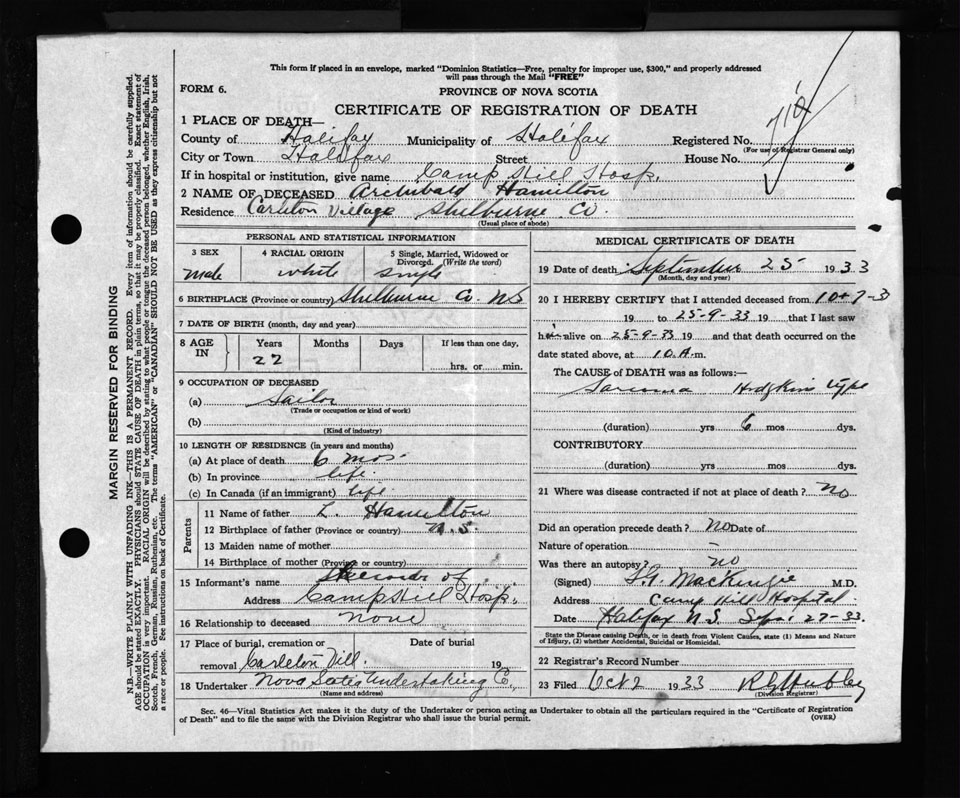 This form if placed in an envelope, marked "Dominion Statistics—Free, penalty for improper use, $300," and properly addressed
will pass through the Mail "FREE"
FORM 6.
PROVINCE OF NOVA SCOTIA
CERTIFICATE OF REGISTRATION OF DEATH
1 PLACE OF DEATH—
County of Halifax Municipality of Halifax Registered No.
(For use of Registrar General only)
City or Town Halifax Street House No.
If in hospital or institution, give name Camp Hill Hosp.
2 NAME OF DECEASED Archibald Hamilton
Residence Carleton Village Shelburne Co.
(Usual place of abode)
MARGIN RESERVED FOR BINDING
N.B.—WRITE PLAINLY WITH UNFADING INK—THIS IS A PERMANENT RECORD. Every item of information should be carefully supplied.
AGE should be stated EXACTLY. PHYSICIANS should STATE CAUSE OF DEATH in plain terms, so that it may be properly classified. Exact statement of
OCCUPATION is very important. RACIAL ORIGIN will be described by stating to what people or tongue the deceased person belonged, whether English, Irish,
Scotch, French, German, Russian, Ruthenian, etc. The terms "AMERICAN" or "CANADIAN" SHOULD NOT BE USED as they express citizenship but not
a race or people. See instructions on back of Certificate.
PERSONAL AND STATISTICAL INFORMATION
3 SEX 4 RACIAL ORIGIN 5 Single, Married, Widowed or
Divorced. (Write the word)
male white single
6 BIRTHPLACE (Province or country) Shelburne Co. NS
7 DATE OF BIRTH (month, day and year)
8 AGE IN Years Months Days If less than one day,
22 hrs. or min.
9 OCCUPATION OF DECEASED
(a) Sailor
(Trade or occupation or kind of work)
(b)
(Kind of industry)
10 LENGTH OF RESIDENCE (in years and months)
(a) At place of death 6 mos.
(b) In province life
(c) In Canada (if an immigrant) life
Parents
11 Name of father L. Hamilton
12 Birthplace of father (Province or country) N.S.
13 Maiden name of mother
14 Birthplace of mother (Province or country)
15 Informant's name Records of
Address Camp Hill Hosp.
16 Relationship to deceased none
17 Place of burial, cremation or Date of burial
removal Carleton Vill. 19
18 Undertaker Nova Scotia Undertaking Co.
(Name and address)
MEDICAL CERTIFICATE OF DEATH
19 Date of death September 25 1933
(Month, day and year)
20 I HEREBY CERTIFY that I attended deceased from
19 to 25-9-33 19 that I last saw
him alive on 25-9-33 19 and that death occurred on the
date stated above, at 10 A.m.
The CAUSE of DEATH was as follows:—
Sarcoma Hodgkins type
(duration) yrs 6 mos dys.
CONTRIBUTORY
(duration) yrs. mos dys.
21 Where was disease contracted if not at place of death? no
Did an operation precede death? no Date of
Nature of operation
Was there an autopsy? no
(Signed) MacKenzie M.D.
Address Camp Hill Hospital
Date Halifax N.S. 27-33
State the Disease causing Death, or in death from Violent Causes, state (1) Means and Nature
of Injury, (2) whether Accidental, Suicidal or Homicidal.
22 Registrar's Record Number
23 Filed Oct 2 1933
(Division Registrar)
Sec. 46—Vital Statistics Act makes it the duty of the Undertaker or person acting as Undertaker to obtain all the particulars required in the "Certificate of Registration
of Death" and to file the same with the Division Registrar who shall issue the burial permit.
(OVER)